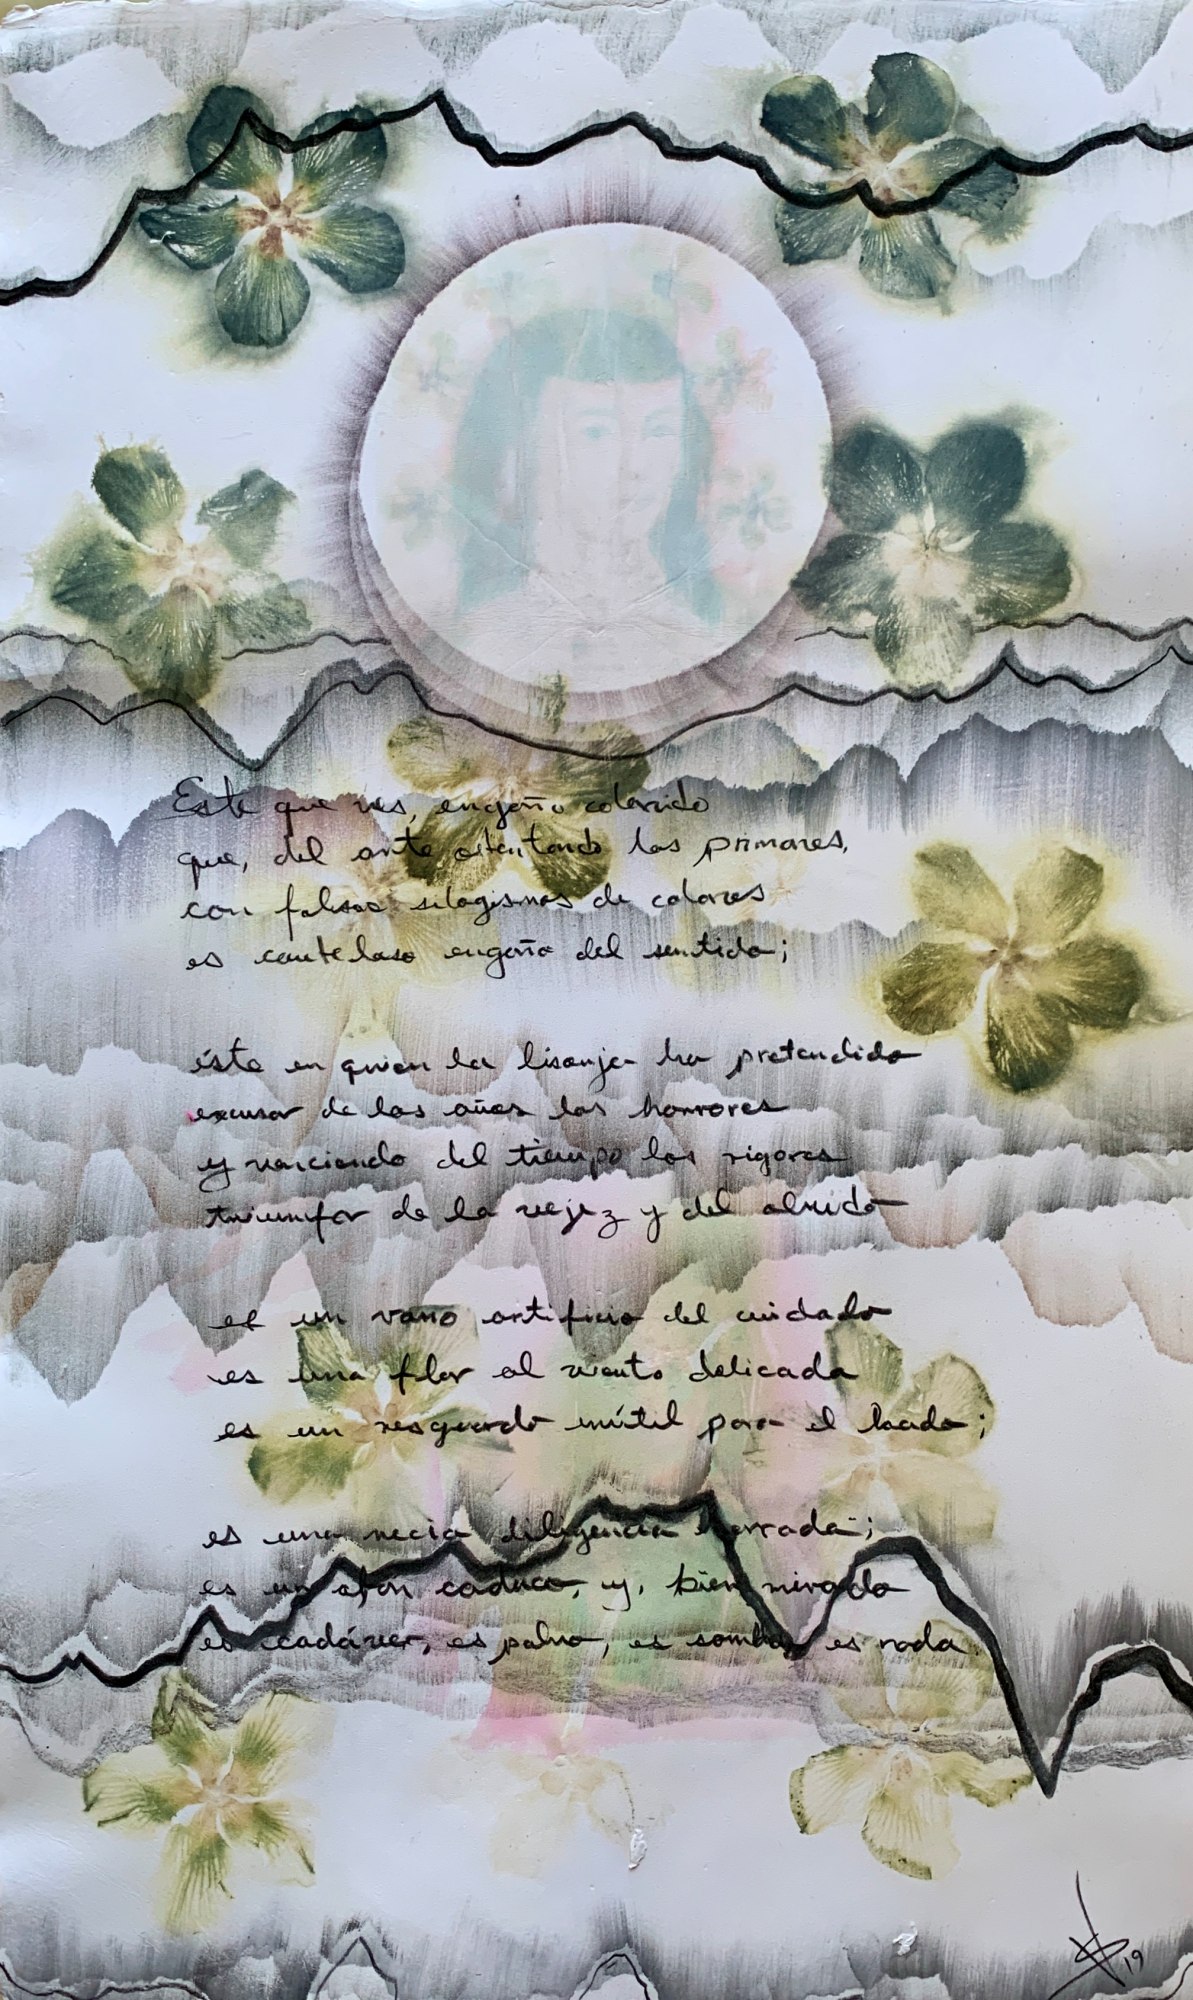 Este que ves, engaño colorido
que, del arte ostentando los primores,
con falsos silogismos de colores
es cauteloso engaño del sentido;
éste en quien la lisonja ha pretendido
excusar de los años los horrores
y venciendo del tiempo los rigores
triunfar de la vejez y del olvido
es un vano artificio del cuidado
es una flor al viento delicada
es un resguardo inútil para el hado;
es una necia diligencia errada;
es un afán caduco, y, bien mirado
es cadáver, es polvo, es sombra es nada
19